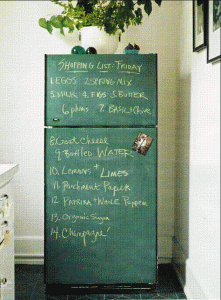 SHOPPING LIST: FRIDAY
1. EGGS 2. SPRING MIX
3. MILK 4. FIGS 5. BUTTER
6. plums 7. BASIL + Chive
8. Goat Cheese
9. Bottled WATER
10. LEMONS + LIMES
11. Parchment Paper
12. PAPRIKA + WHOLE Pepper
13. Organic Sugar
14. Champagne!